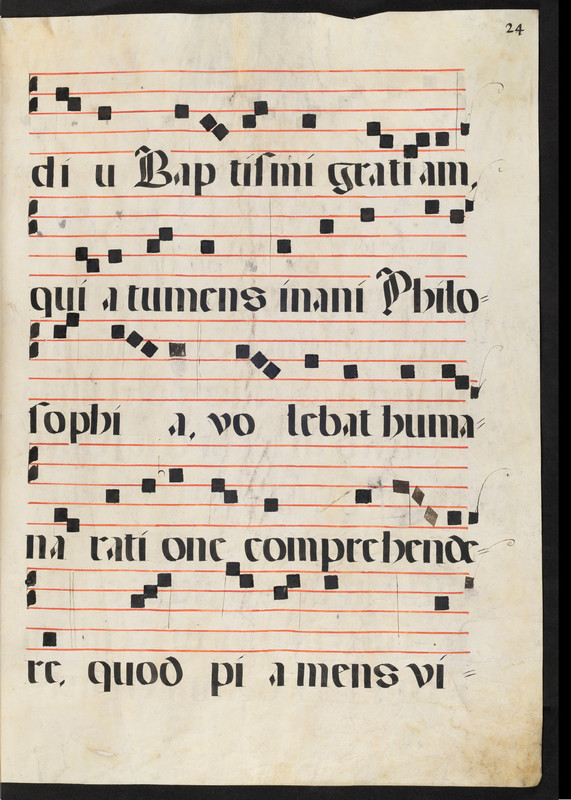 24
di u Bap tiſmi grati am,
qui a tumens inani Philo=
ſophi a, vo lebat huma=
na rati one comprehende=
re, quod pi a mens vi =